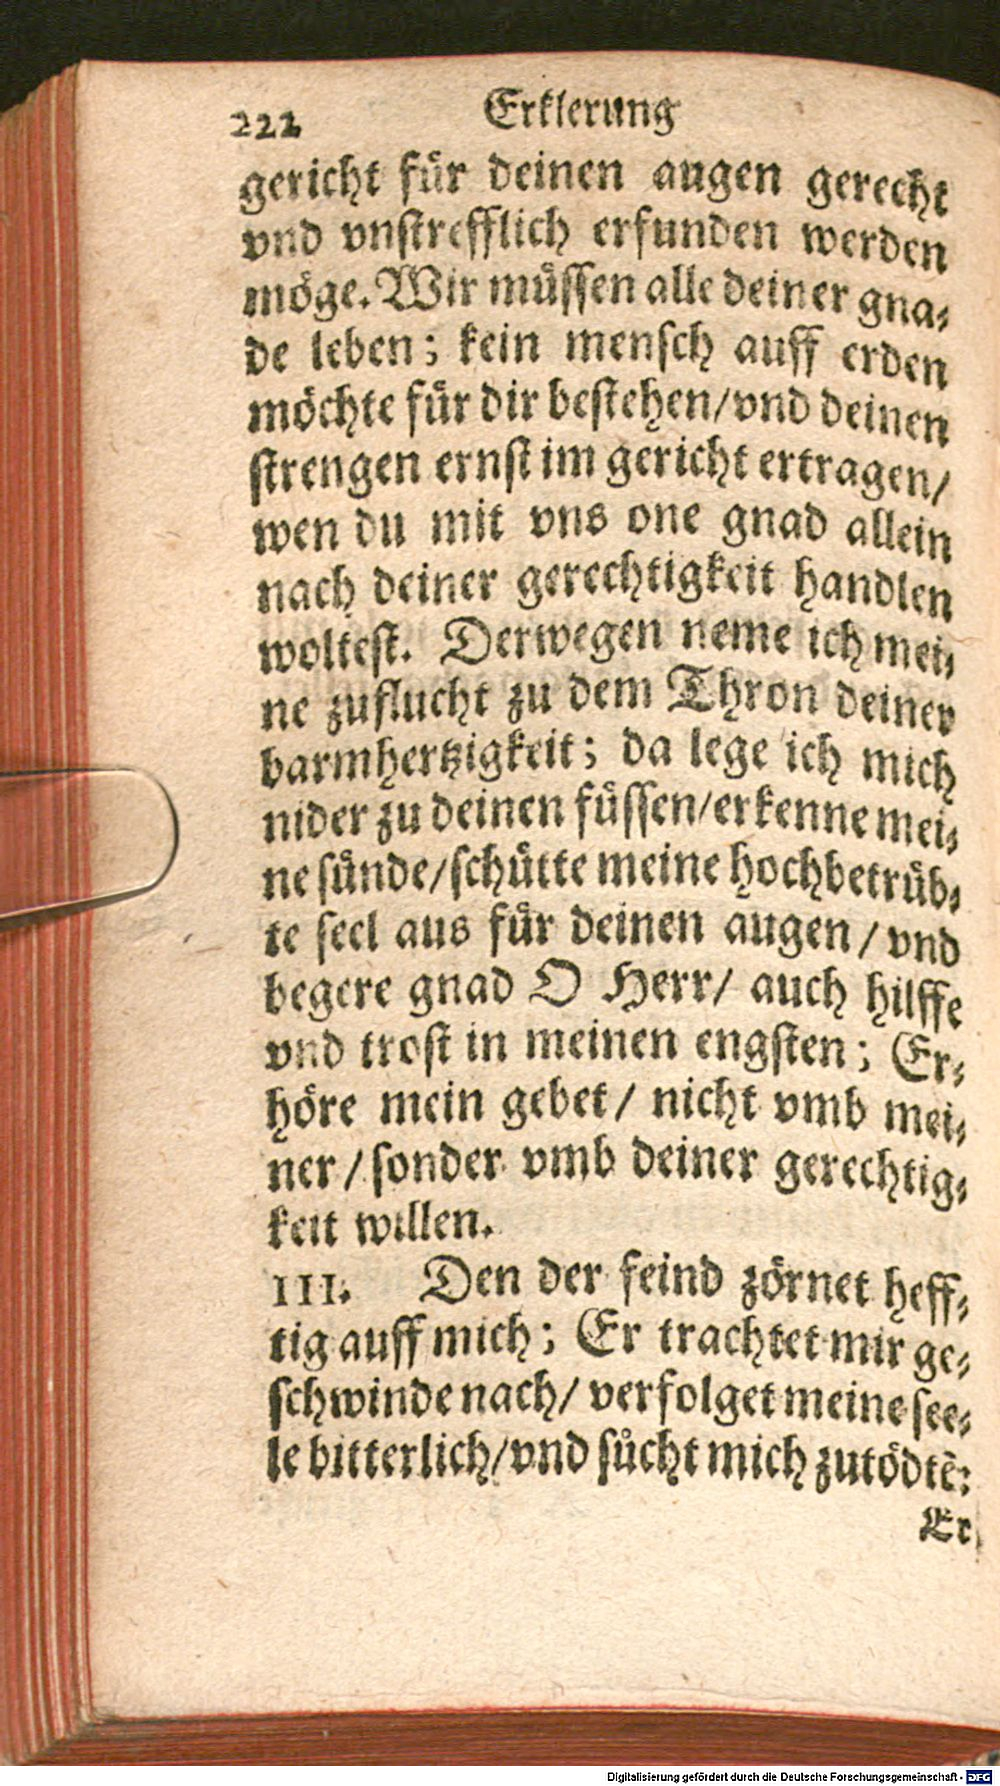 222 Erklerung
gericht für deinen augen gerecht
vnd vnstrefflich erfunden werden
möge. Wir müssen alle deiner gna⸗
de leben; kein mensch auff erden
möchte für dir bestehen/vnd deinen
strengen ernst im gericht ertragen/
wen du mit vns one gnad allein
nach deiner gerechtigkeit handlen
woltest. Derwegen neme ich mei⸗
ne zuflucht zu dem Thron deiner
barmhertzigkeit; da lege ich mich
nider zu deinen füssen/erkenne mei⸗
ne sünde/schütte meine hochbetrüb⸗
te seel aus für deinen augen/vnd
begere gnad O Herr/ auch hilffe
vnd trost in meinen engsten; Er⸗
höre mein gebet/ nicht vmb mei⸗
ner/sonder vmb deiner gerechtig⸗
keit willen.
III. Den der feind zörnet heff⸗
tig auff mich; Er trachtet mir ge⸗
schwinde nach/ verfolget meine see⸗
le bitterlich/vnd sücht mich zutödtẽ:
Er
Digitalisierung gefördert durch die Deutsche Forschungsgemeinschaft - DFG